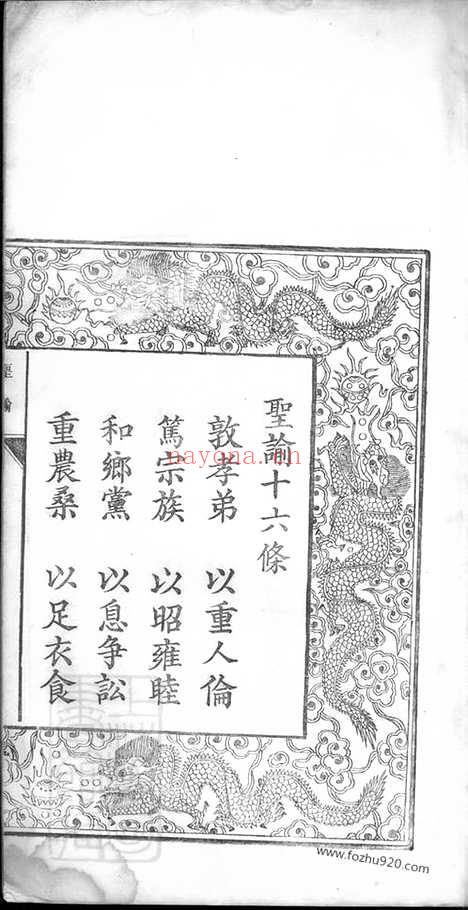 聖諭十六條
敦孝弟 以重人倫
篤宗族 以昭雍睦
和鄉黨 以息爭訟
重農桑 以足衣食
聖諭
nayona.cn
www.fozhu920.com